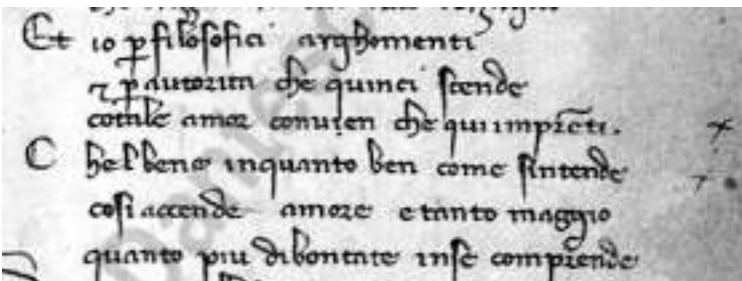 Et io p filosofici arghomenti
⁊ p autorita che quinci scende
cotale amor conuien che qui imprēti.
C hel bene inquanto ben come sintende
cosi accende amore e tanto maggio
quanto piu dibontate inse comprende